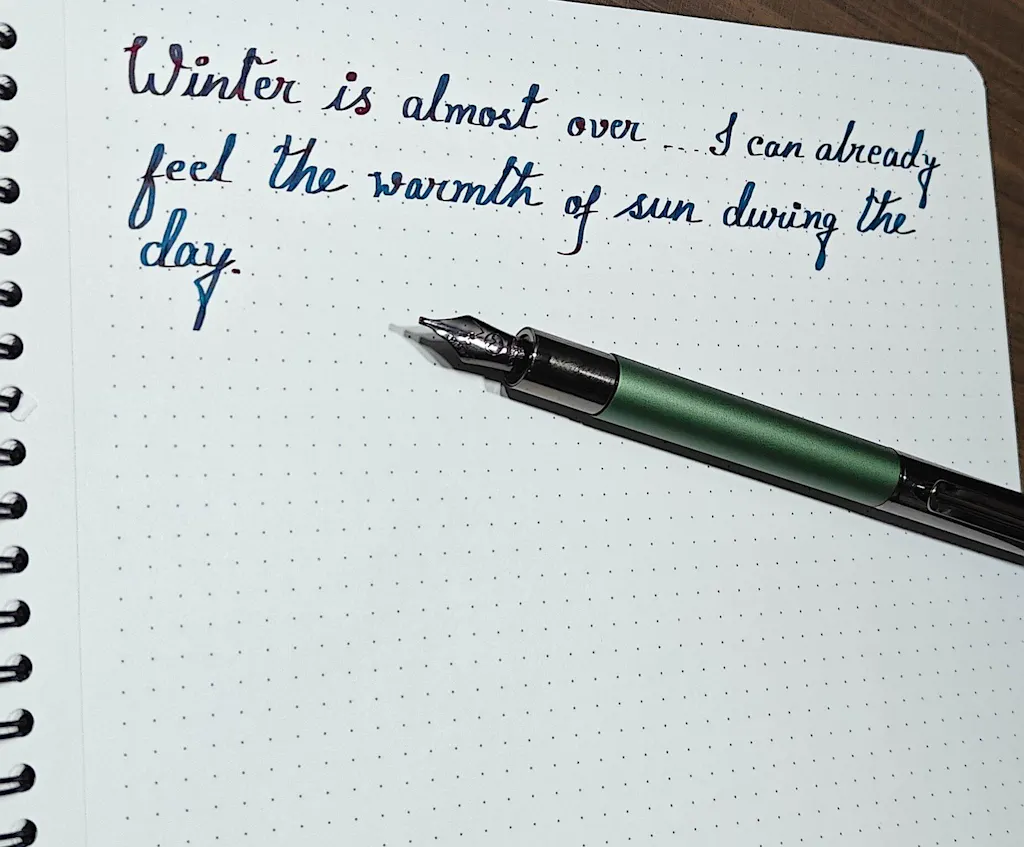 Winter is almost over ... I can already
feel the warmth of sun during the
day.